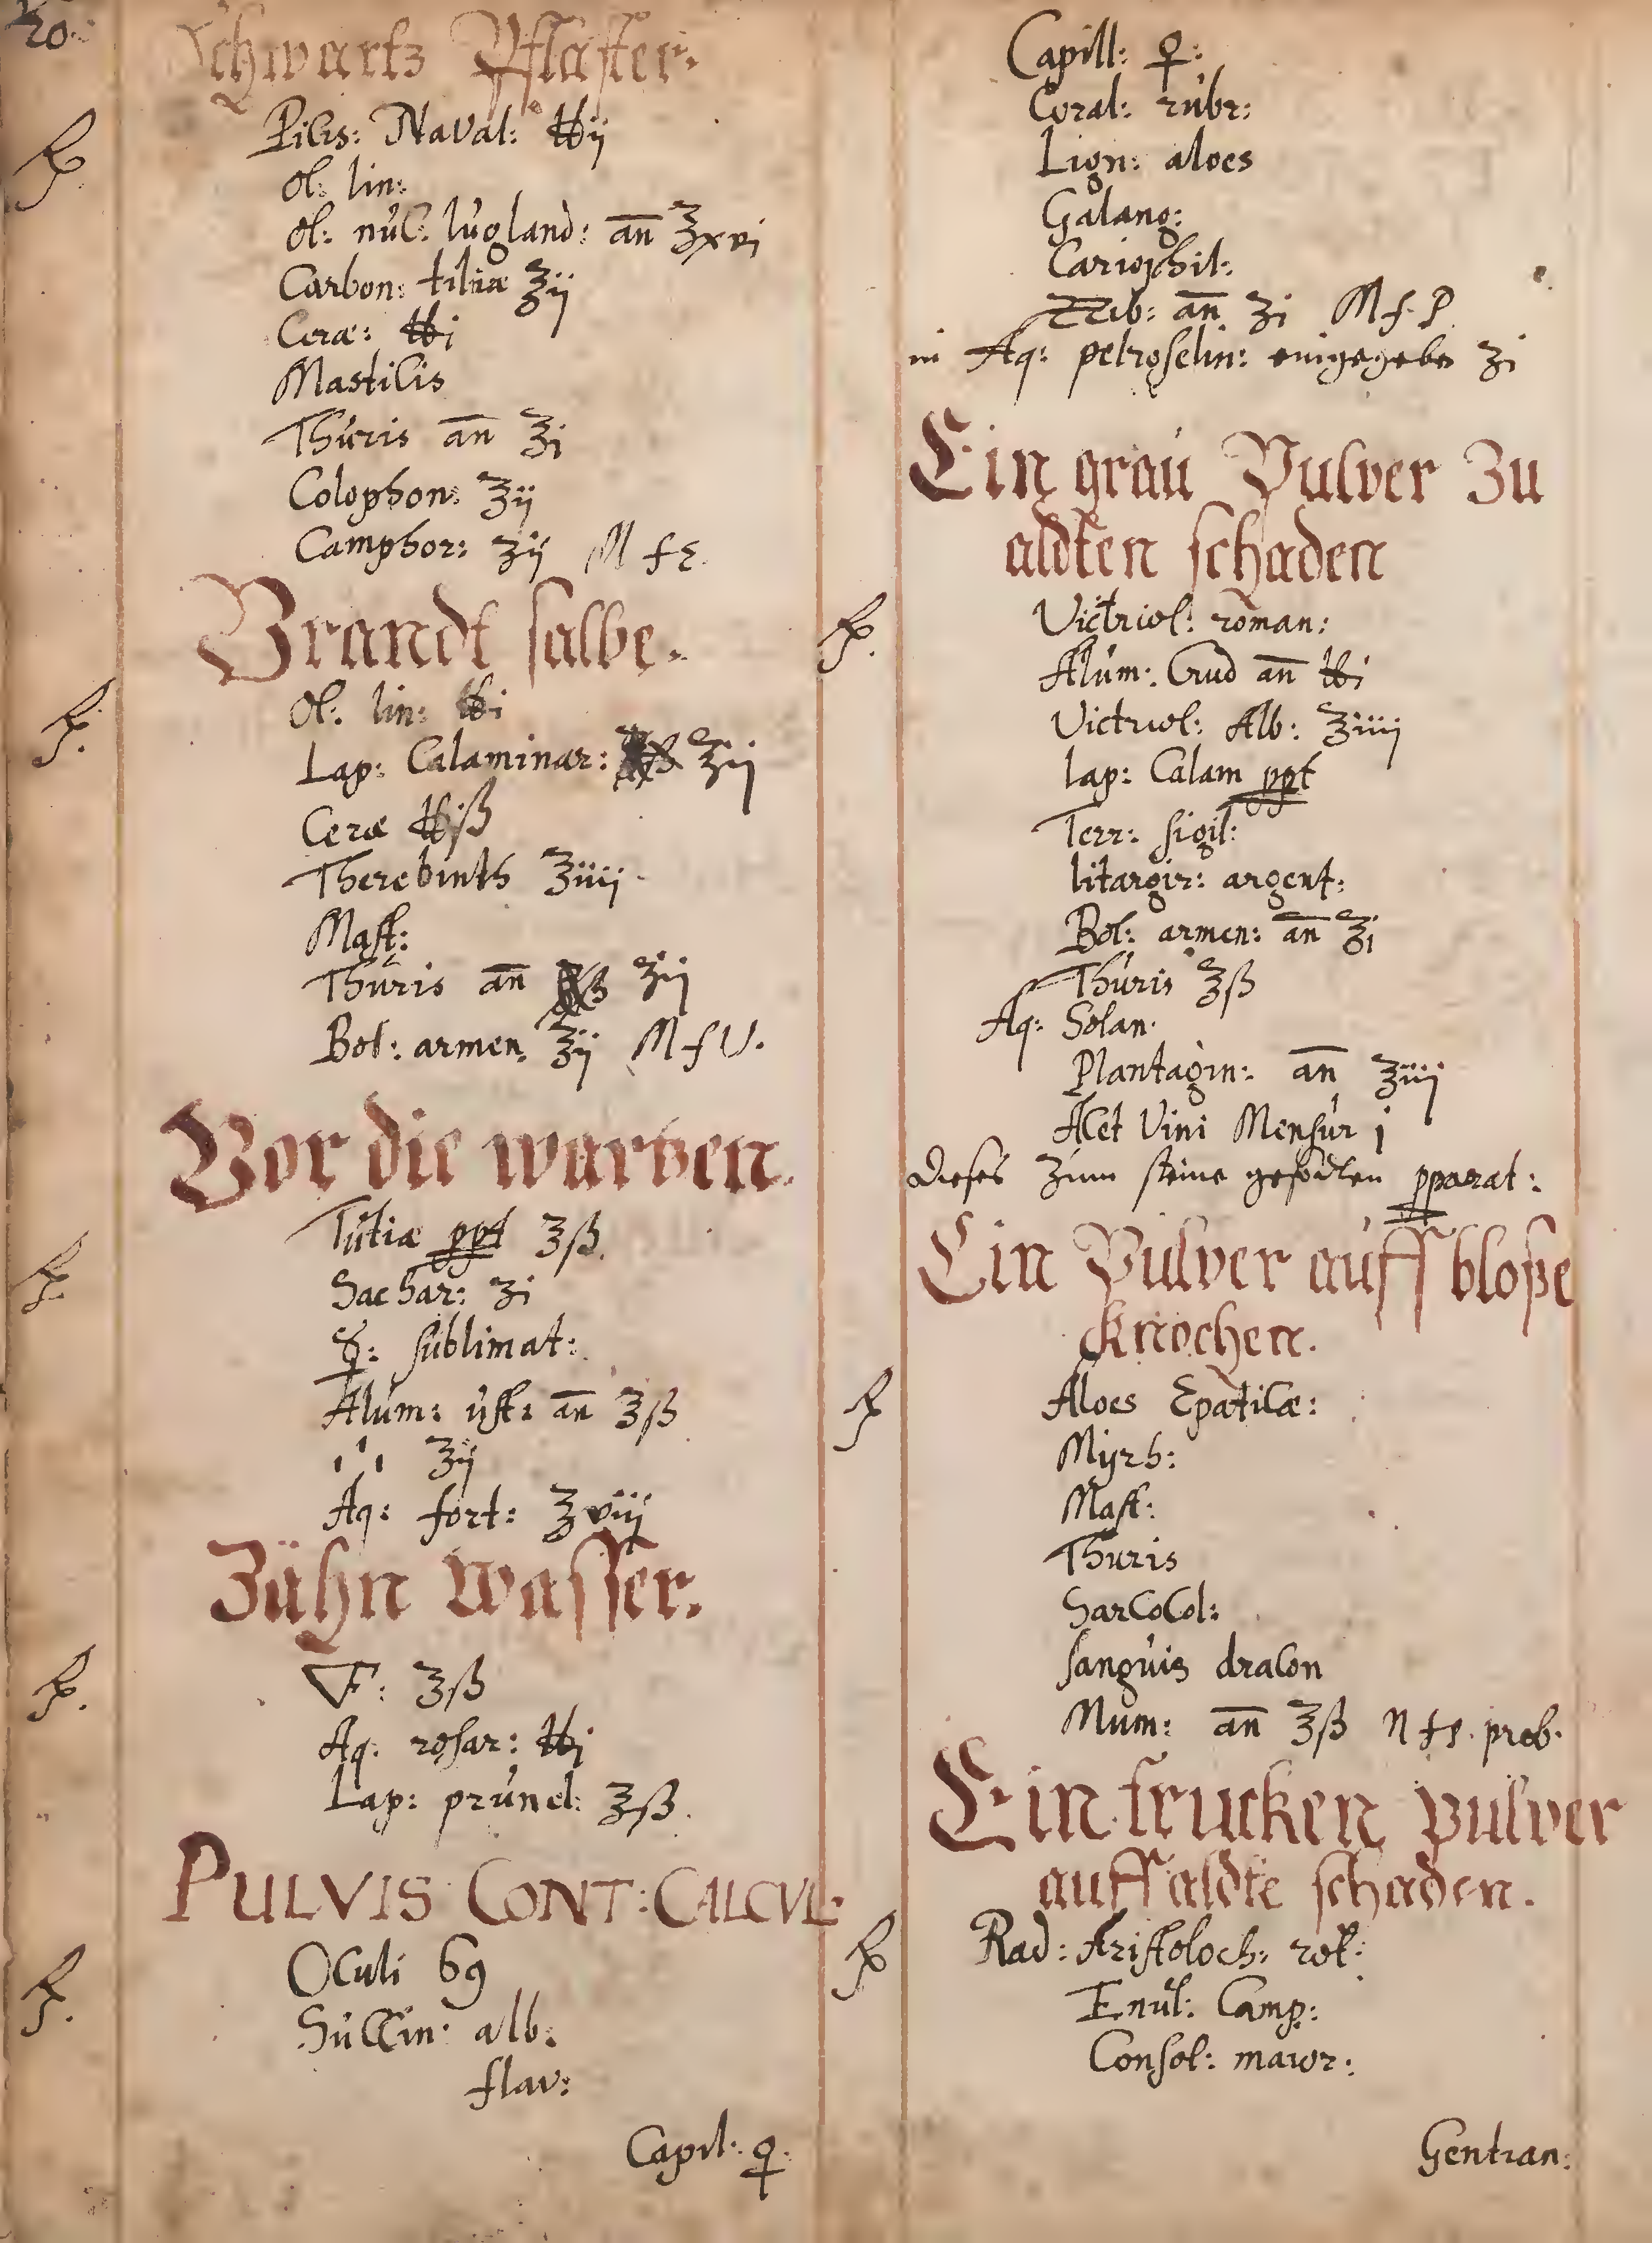 20.
Schwartz Pflaster.
℞. Picis: Naval: ℔ij
ol: lin:
ol: nuc: Iugland: añ ℥xvi
Carbon: tiliæ ℥ij
Ceræ: ℔i
Masticis
Thuris añ ℥i
Colophon: ℥ij
Camphor: ʒij M f E.
Brandt salbe.
℞. Ol: lin: ℔i
Lap: Calaminar: ℥ij
Ceræ ℔iß
Therebinth ℥iiij.
Mast:
Thuris añ ℥ij
Bol: armen. ℥ij M f V.
Vor die wartzen.
℞. Tutiæ ppt ʒß.
Sachar: ʒi
☿: sublimat:
Alum: ust: añ ʒß
ʒij
Aq: fort: ℥viij
Zähn Wasser.
℞. ʒß
Aq: rosar: ℔i
Lap: prunel: ʒß.
PULVIS CONT: CALCUL:
℞. Oculi 69
Succin: alb:
flav:
Capil: ♀:
Capill: ♀:
Coral: rubr:
Lign: aloes
Galang:
Cariophil:
Zzib: añ ʒi M f. P
in Aq: petroselin: eingegeben ʒi
Ein grau Pulver Zu
aldten schaden
℞. Victriol: roman:
Alum: Crud añ ℔i
Victriol: Alb: ℥iiij
lap: Calam ppt
Terr: sigil:
litargir: argent:
Bol: armen: añ ℥i
Thuris ℥ß
Aq: Solan:
Plantagin: añ ℥iiij
Acet Vini Mensur i
dieses zum steine gesotten pparat:
Ein Pulver auff bloße
knochen.
℞ Aloes Epaticæ:
Myrh:
Mast:
Thuris
SarCoCol:
sanguis dracon
Mum: añ ℥ß M f P. prob.
Ein trucken pulver
auff aldte schaden.
℞ Rad: Aristoloch: rot:
Enul: Camp:
Consol: maior:
Gentian: